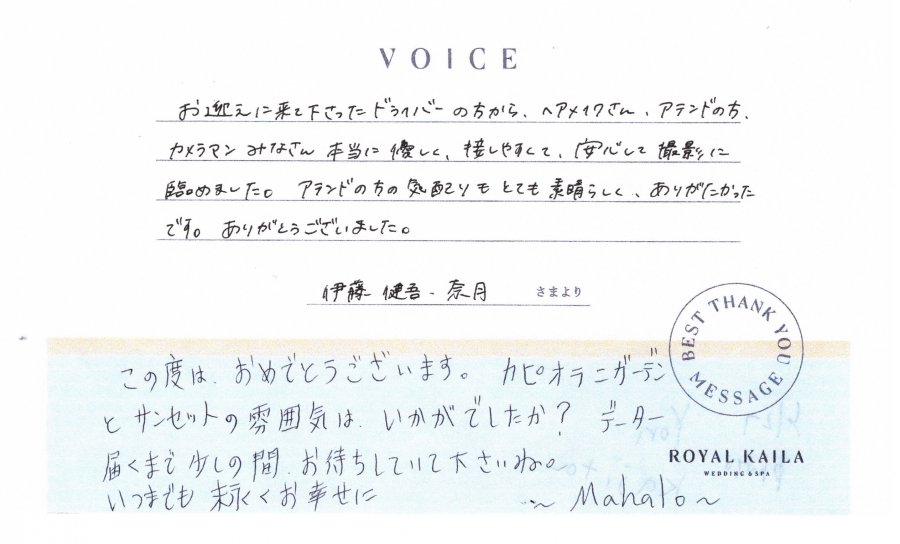 VOICE
お迎えに来て下さったドライバーの方から、ヘアメイクさん、アテンドの方、
カメラマンみなさん本当に優しく、接しやすくて、安心して撮影に
臨めました。アテンドの方の気配りもとても素晴らしく、ありがたかった
です。ありがとうございました。
伊藤 健吾・奈月 さまより
BEST THANK YOU MESSAGE
この度は、おめでとうございます。カピオラニガーデン
とサンセットの雰囲気は、いかがでしたか？ データー
届くまで少しの間、お待ちしていて下さいね。
いつまでも末永くお幸せに ～Mahalo～
ROYAL KAILA
WEDDING & SPA